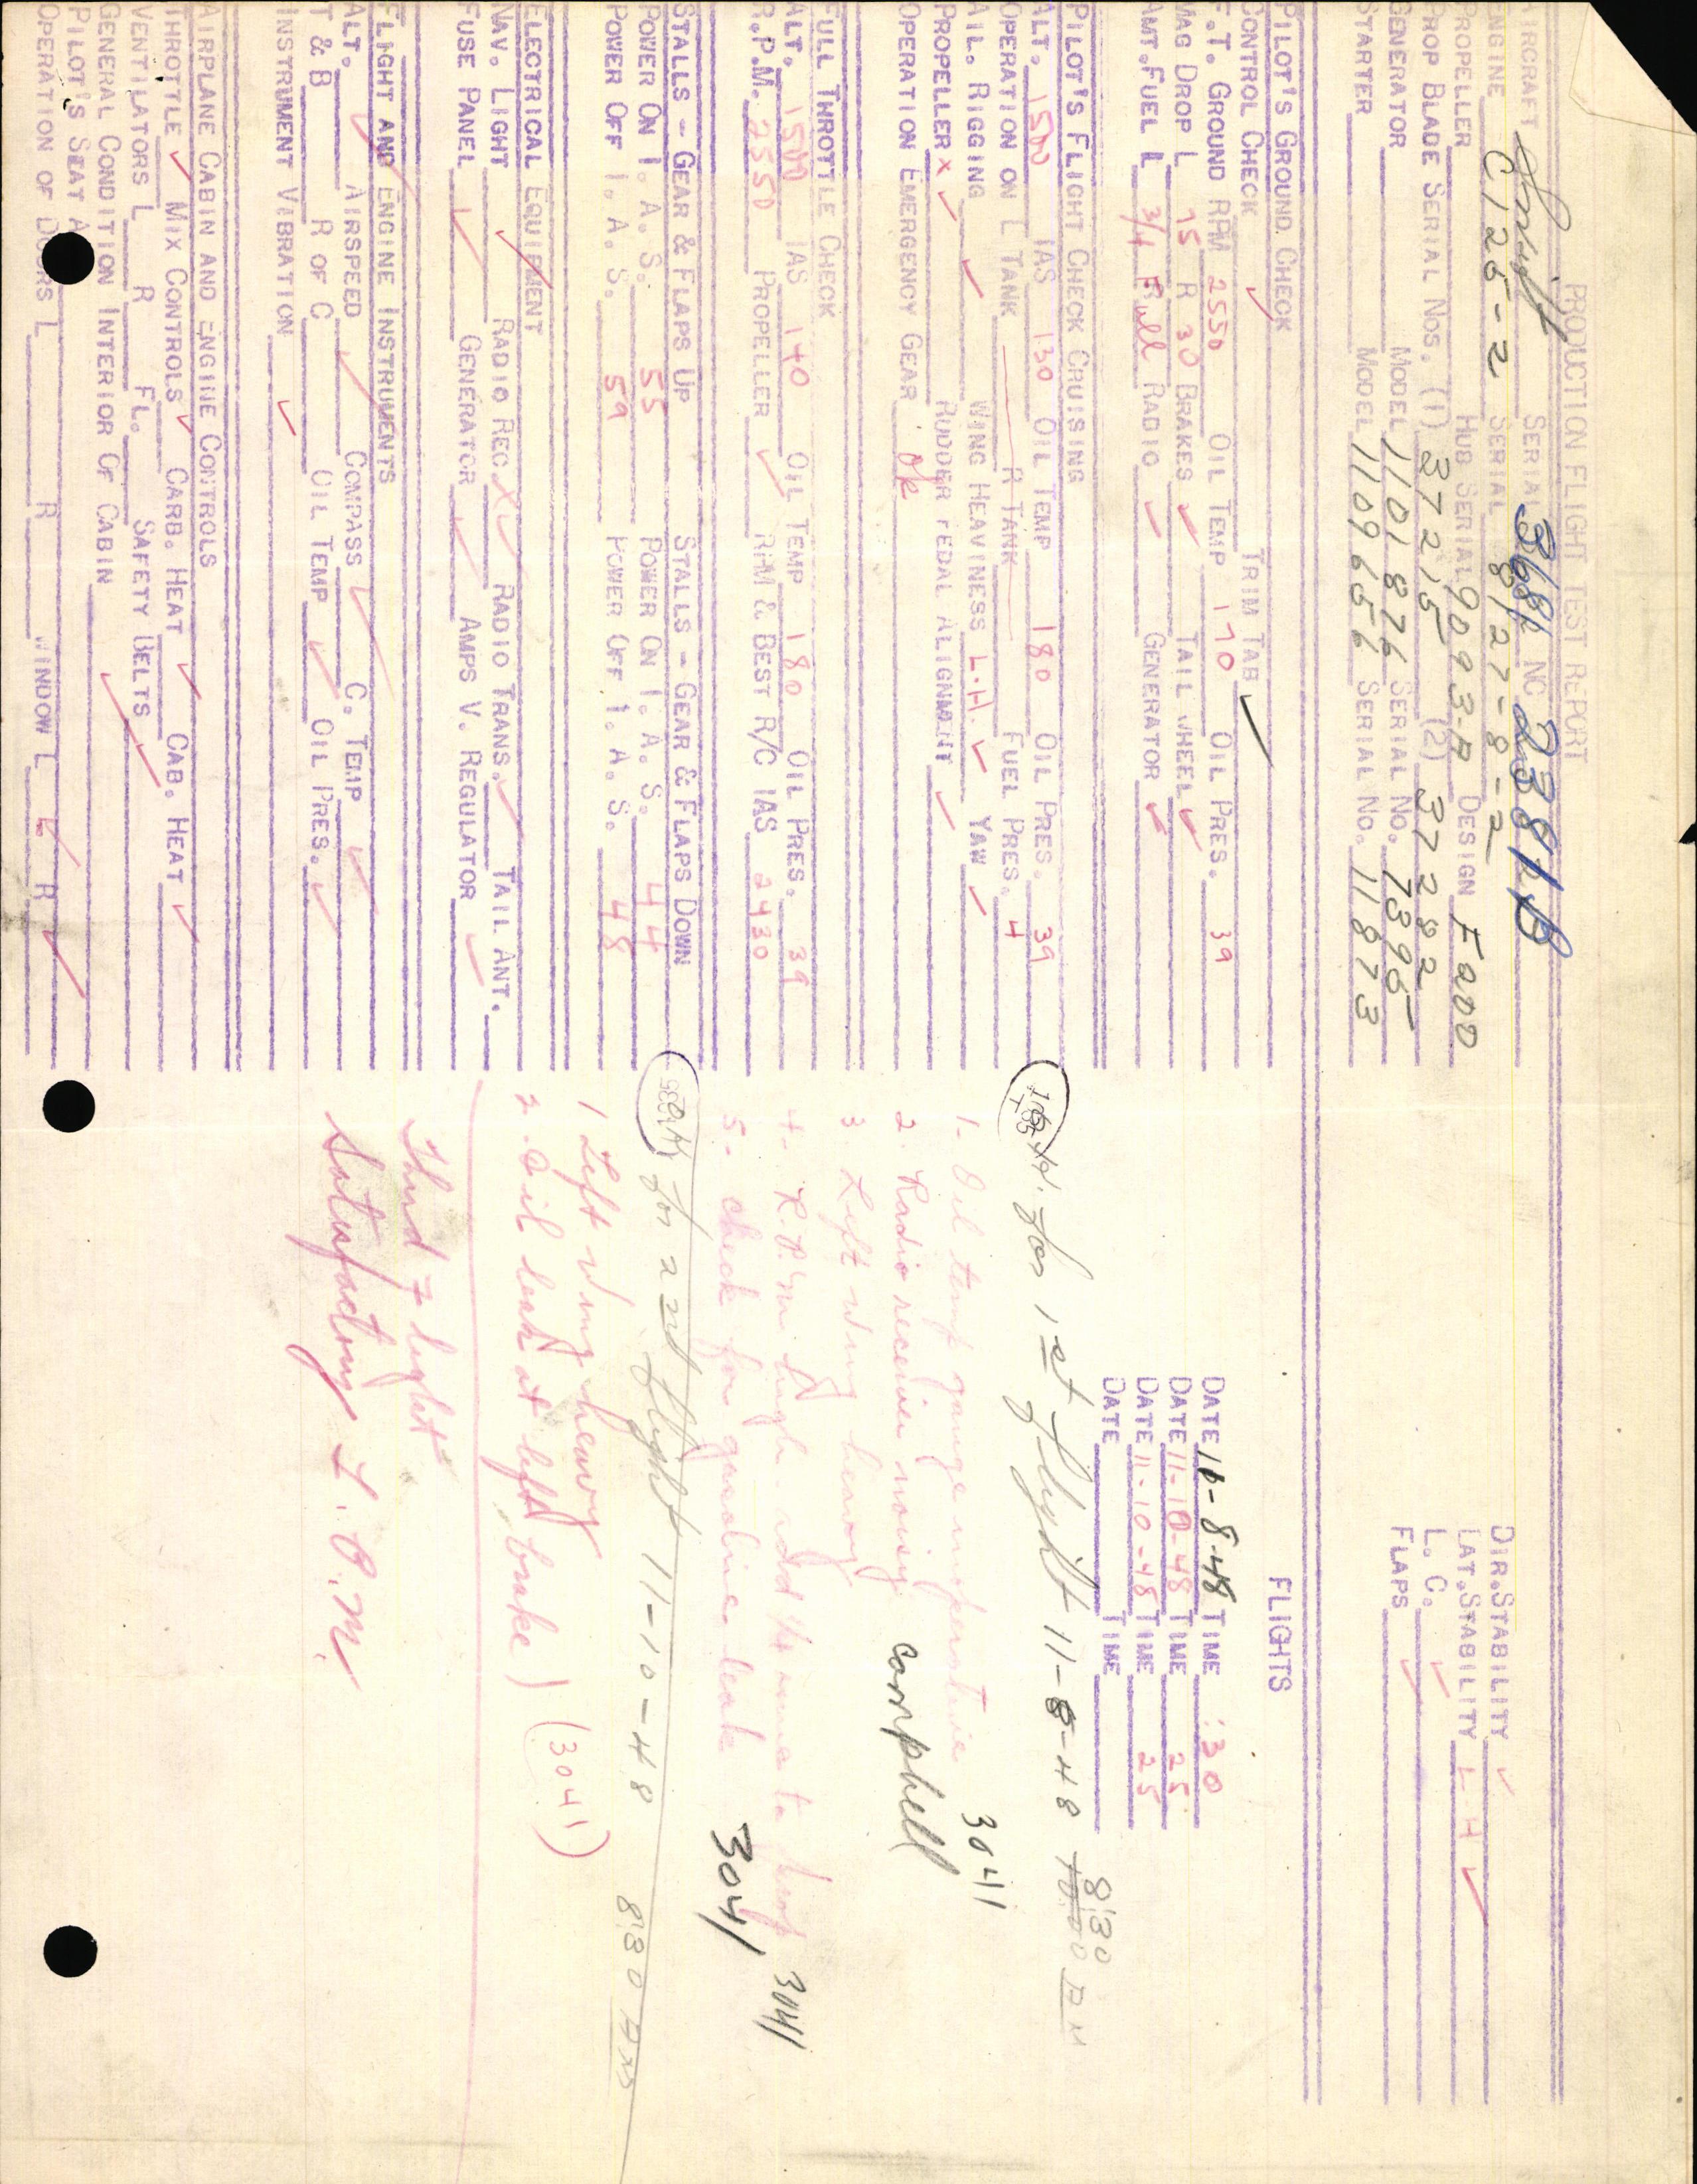 PRODUCTION FLIGHT TEST REPORT
AIRCRAFT Swift SERIAL 3681 NC 2381B
ENGINE C125-2 SERIAL 8127-8-2
PROPELLER HUB SERIAL 9093-A DESIGN F200
PROP BLADE SERIAL NOS. (1) 37215 (2) 372282
GENERATOR MODEL 1101876 SERIAL NO. 7395
STARTER MODEL 1109656 SERIAL NO. 11873
DIR. STABILITY ✓
LAT. STABILITY L H ✓
L. C. ✓
FLAPS ✓
PILOT'S GROUND CHECK
CONTROL CHECK ✓ TRIM TAB ✓
F.T. GROUND RPM 2550 OIL TEMP 170 OIL PRES. 39
MAG DROP L 75 R 30 BRAKES ✓ TAIL WHEEL ✓
AMT. FUEL L 3/4 R Full RADIO ✓ GENERATOR ✓
FLIGHTS
DATE 11-8-48 TIME :30
DATE 11-10-48 TIME 25
DATE 11-10-48 TIME 25
DATE TIME
PILOT'S FLIGHT CHECK CRUISING
ALT. 1500 IAS 130 OIL TEMP 180 OIL PRES. 39
OPERATION ON L TANK R TANK FUEL PRES. 4
AIL. RIGGING ✓ WING HEAVINESS L.H. ✓ YAW ✓
PROPELLER X ✓ RUDDER PEDAL ALIGNMENT ✓
OPERATION EMERGENCY GEAR OK
FULL THROTTLE CHECK
ALT. 1500 IAS 140 OIL TEMP 180 OIL PRES. 39
R.P.M. 2550 PROPELLER ✓ RPM & BEST R/C IAS 2430
STALLS - GEAR & FLAPS UP STALLS - GEAR & FLAPS DOWN
POWER ON I. A. S. 55 POWER ON I. A. S. 44
POWER OFF I. A. S. 59 POWER OFF I. A. S. 48
ELECTRICAL EQUIPMENT
NAV. LIGHT ✓ RADIO REC X ✓ RADIO TRANS. ✓ TAIL ANT.
FUSE PANEL ✓ GENERATOR ✓ AMPS V. REGULATOR ✓
FLIGHT AND ENGINE INSTRUMENTS
ALT. ✓ AIRSPEED ✓ COMPASS ✓ C. TEMP ✓
T & B R OF C OIL TEMP ✓ OIL PRES. ✓
INSTRUMENT VIBRATION ✓
AIRPLANE CABIN AND ENGINE CONTROLS
THROTTLE ✓ MIX CONTROLS ✓ CARB. HEAT ✓ CAB. HEAT ✓
VENTILATORS L R FL. SAFETY BELTS ✓
GENERAL CONDITION INTERIOR OF CABIN ✓
PILOT'S SEAT
OPERATION OF DOORS L R WINDOW L ✓ R ✓
for 1st flight 11-8-48 8:30 10:00 AM
1- Oil temp gauge inoperative 3041
2. Radio receiver noisy. Campbell
3 Left wing heavy
4- R.P.M high. add 1/4 to prop 3041
5- Check for gasoline leak 3041
for 2nd flight 11-10-48 8:30 AM
1 Left wing heavy
2. Oil leak at left brake) (3041)
Third flight
Satisfactory